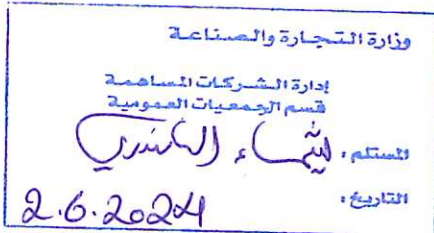 وزارة التجارة والصناعة
إدارة الشركات المساهمة
قسم الجمعيات العمومية
المستلم : شيماء
التاريخ : 2.6.2024